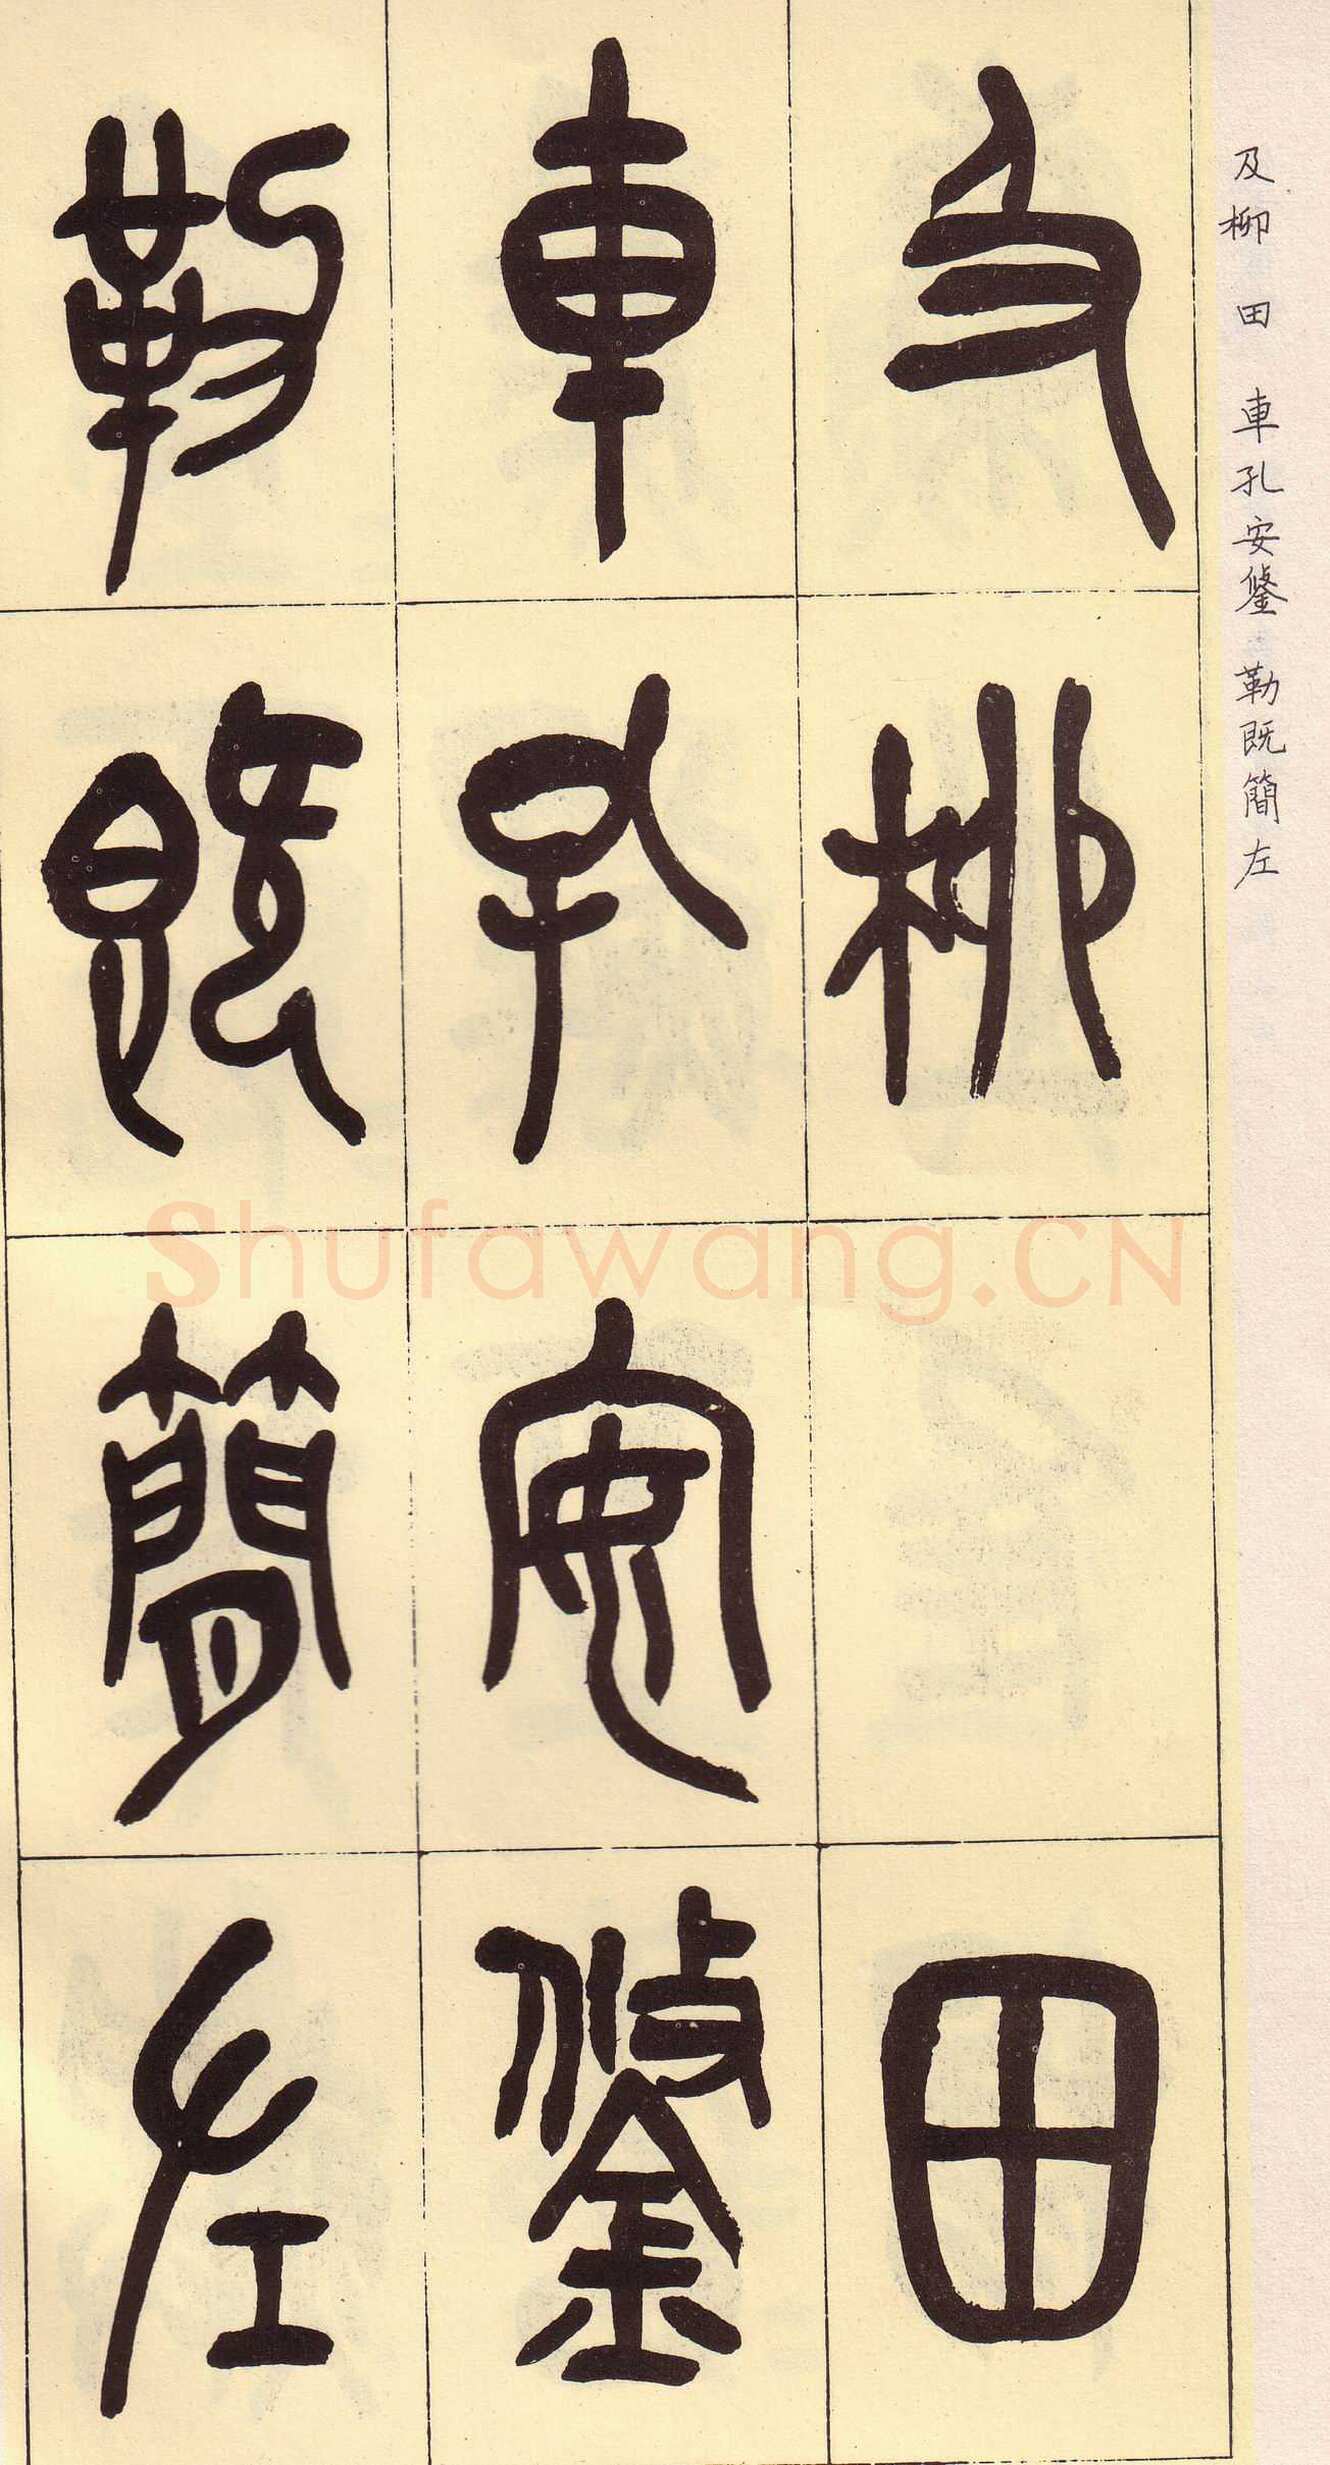 及柳 田
車孔安鋚
勒既簡左
及柳 田 車孔安鋚 勒既簡左
Shufawang.CN